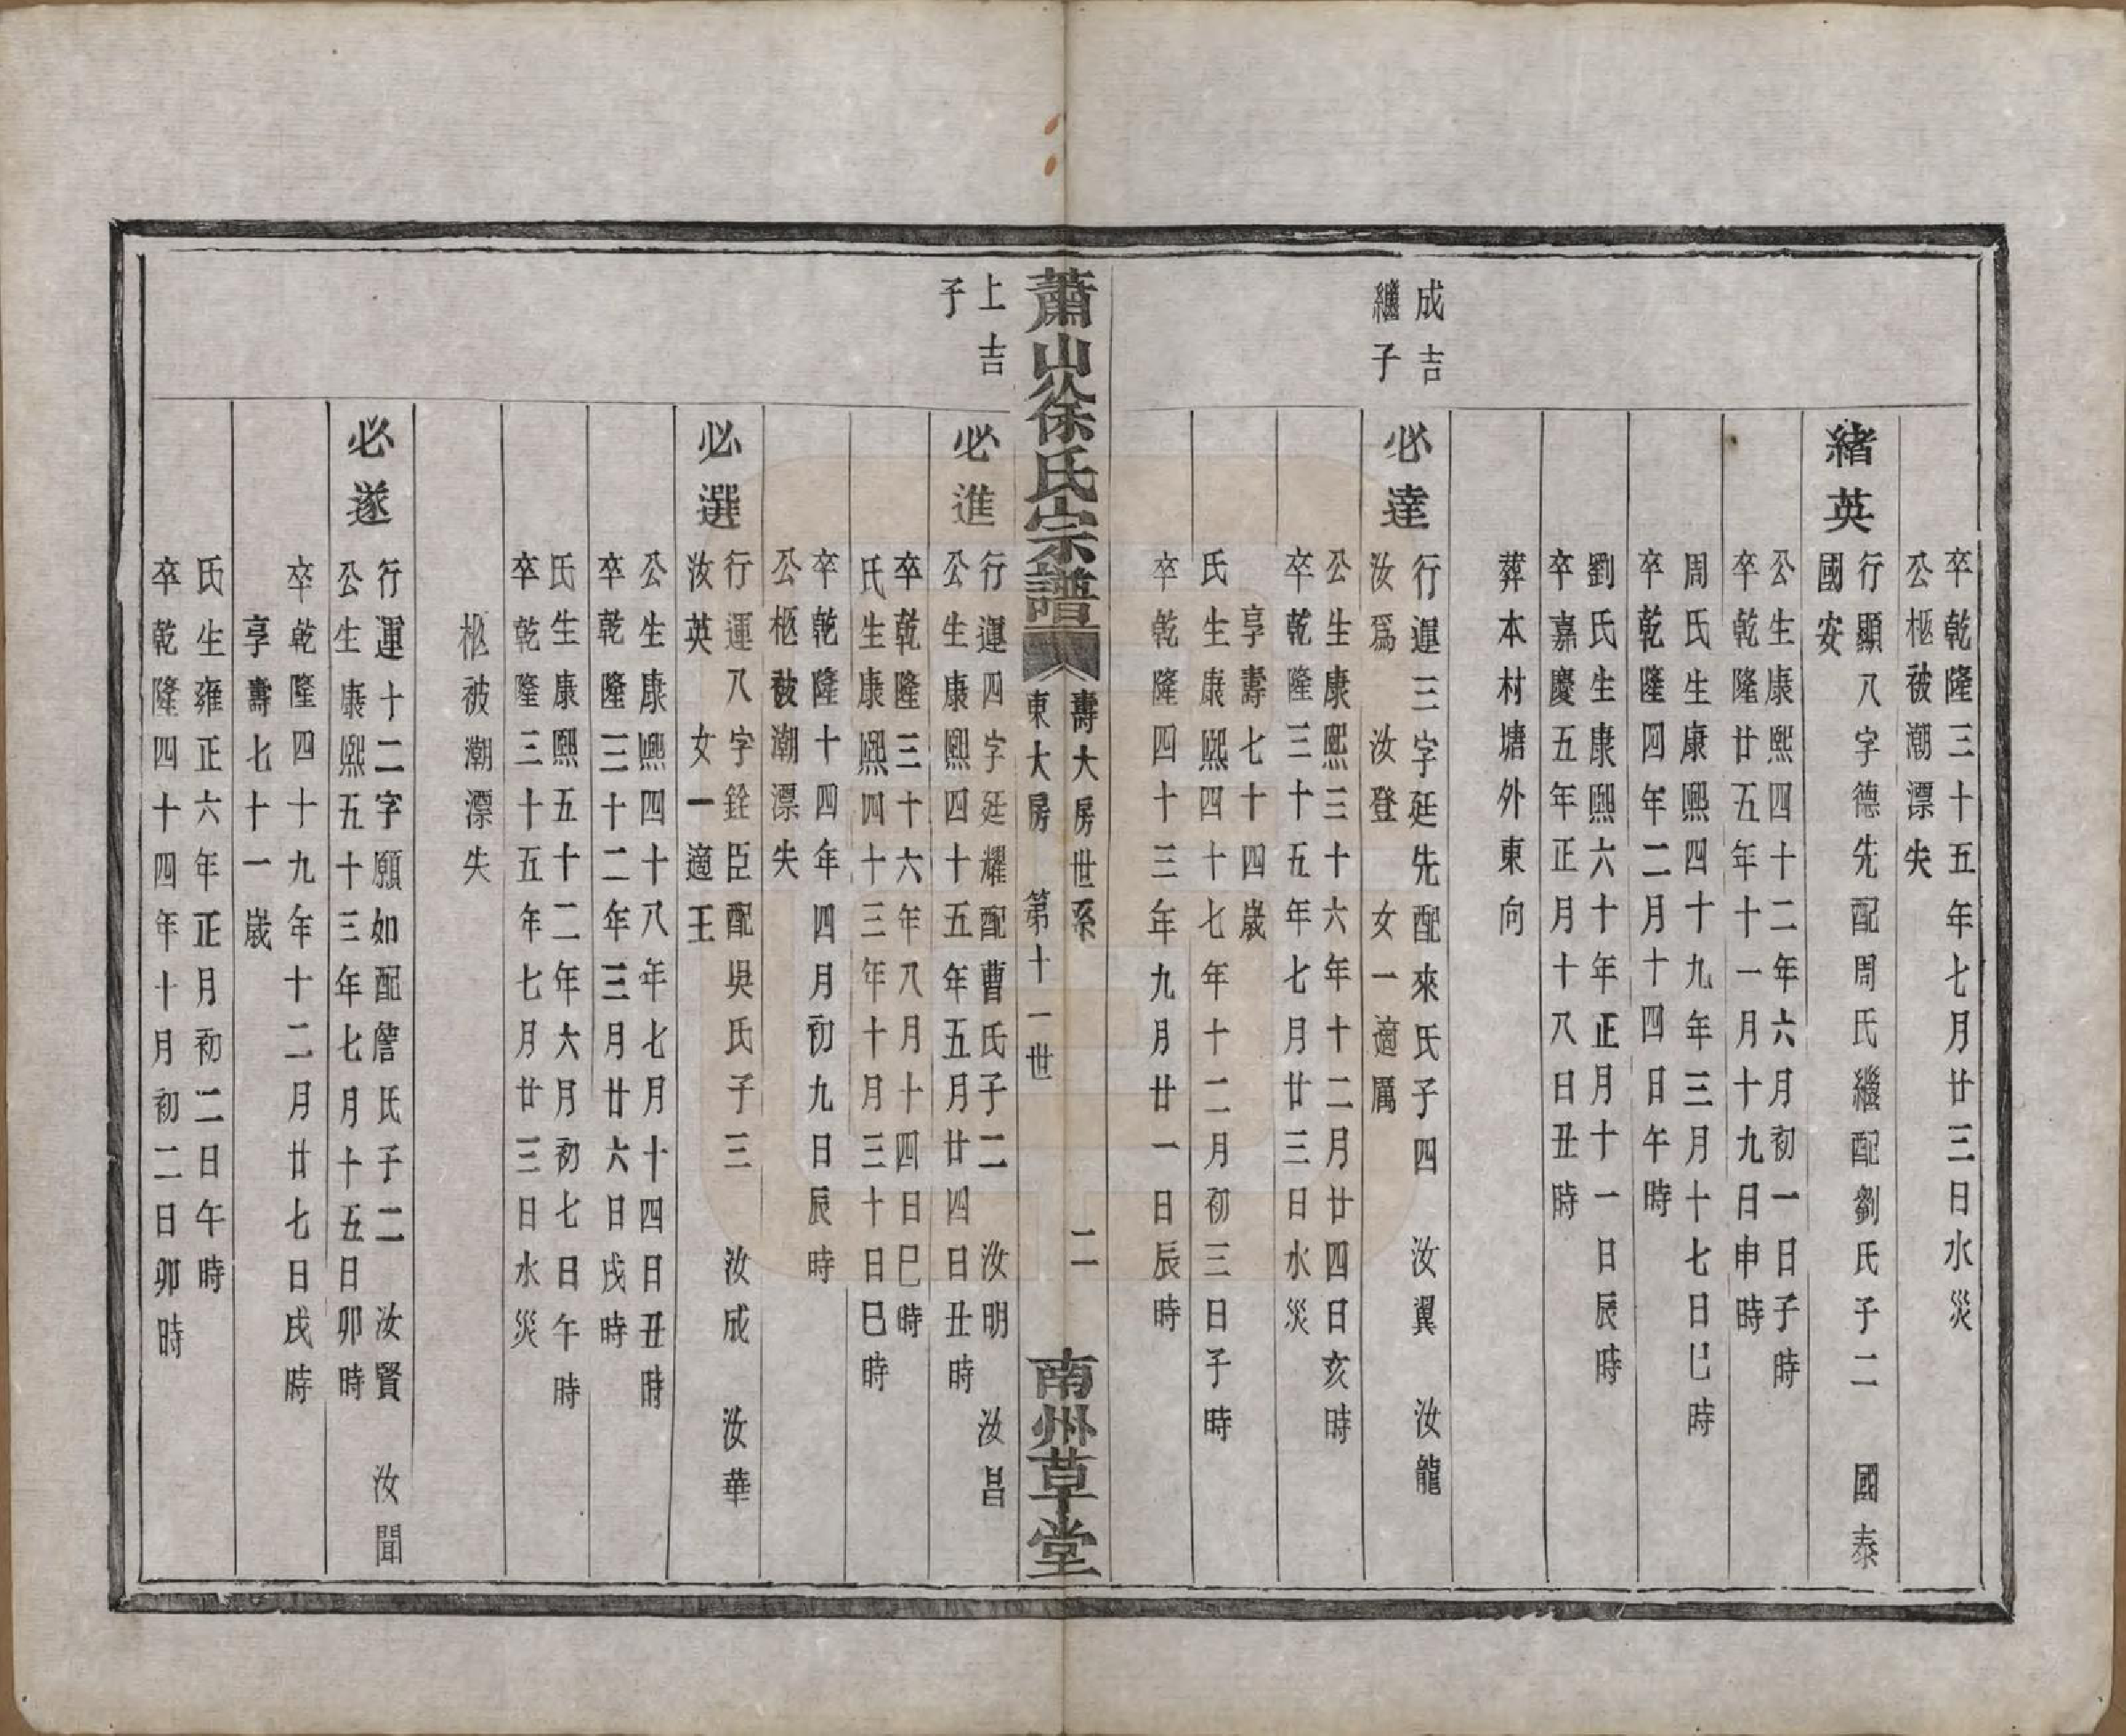 卒乾隆三十五年七月廿三日水災
公柩被潮漂失
緒英
行顯八字德先配周氏繼配劉氏子二 國泰
國安
公生康熙四十二年六月初一日子時
卒乾隆廿五年十一月十九日申時
周氏生康熙四十九年三月十七日巳時
卒乾隆四年二月十四日午時
劉氏生康熙六十年正月十一日辰時
卒嘉慶五年正月十八日丑時
葬本村塘外東向
成吉
繼子
必達
行運三字廷先配來氏子四 汝翼 汝龍
汝爲 汝登 女一適厲
公生康熙三十六年十二月廿四日亥時
卒乾隆三十五年七月廿三日水災
享壽七十四歲
氏生康熙四十七年十二月初三日子時
卒乾隆四十三年九月廿一日辰時
蕭山徐氏宗譜
壽大房世系
東大房 第十一世
二
南州草堂
上吉
子
必進
行運四字廷耀配曹氏子二 汝明 汝昌
公生康熙四十五年五月廿四日丑時
卒乾隆三十六年八月十四日巳時
氏生康熙四十三年十月三十日巳時
卒乾隆十四年四月初九日辰時
公柩被潮漂失
必選
行運八字銓臣配吳氏子三 汝成 汝華
汝英 女一適王
公生康熙四十八年七月十四日丑時
卒乾隆三十二年三月廿六日戌時
氏生康熙五十二年六月初七日午時
卒乾隆三十五年七月廿三日水災
柩被潮漂失
必遂
行運十二字願如配詹氏子二 汝賢 汝聞
公生康熙五十三年七月十五日卯時
卒乾隆四十九年十二月廿七日戌時
享壽七十一歲
氏生雍正六年正月初二日午時
卒乾隆四十四年十月初二日卯時